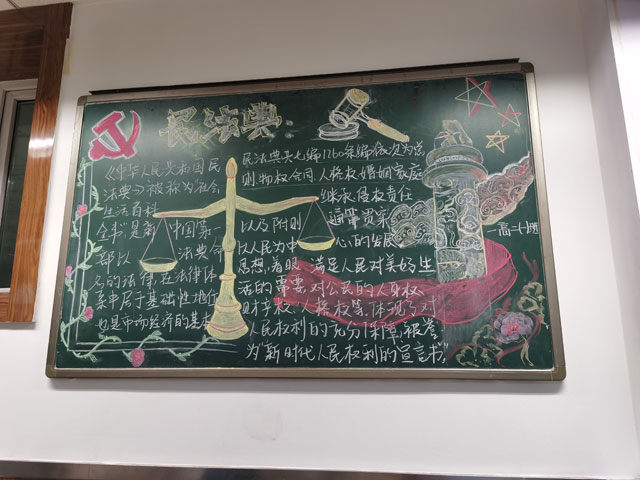 民法典
《中华人民共和国民
法典》被称为社会
生活百科
全书"是新中国第一
部以法典命
名的法律,在法律体
系中居于基础性地位
也是市场经济的基本
民法典共七编1260条,各编依次为总
则、物权、合同、人格权、婚姻家庭
继承、侵权责任
以及附则 通篇贯穿
以人民为中心的发展
思想,着眼 满足人民对美好生
活的需要,对公民的人身权、
财产权、人格权等,体现了对
人民权利的充分保障,被誉
为"新时代人民权利的宣言书"。